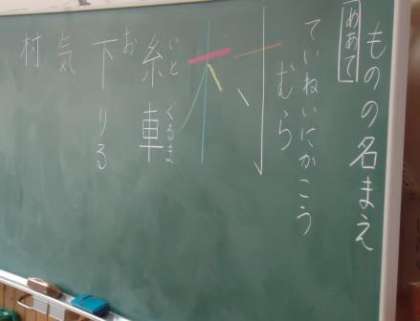 ものの名まえ
めあて
ていねいにかこう
むら
村
いと くるま
糸車
お
下りる
気
村